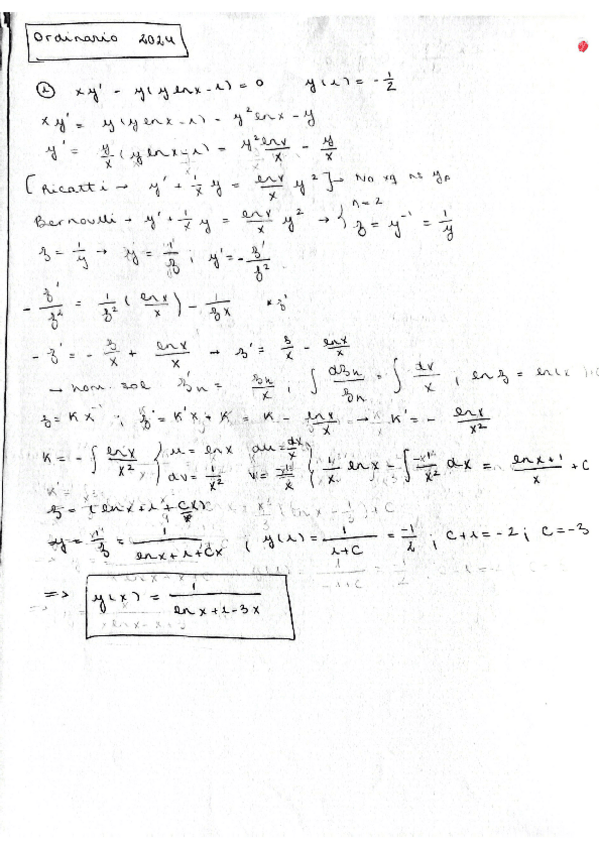 Ordinario 2024
① xy' - y(y lnx - 1) = 0    y(1) = -1/2
xy' = y(y lnx - 1) - y² lnx - y
y' = y/x (y lnx - 1) = y² lnx/x - y/x
[Ricatti → y' + 1/x y = lnx/x y²] →
Bernoulli → y' + 1/x y = lnx/x y² → { n = 2
z = y⁻¹ = 1/y
z = 1/y → y = 1/z ; y' = - z'/z²
- z'/z² = 1/z² (lnx/x) - 1/zx
- z' = - z/x + lnx/x → z' = z/x - lnx/x
→ hom. sol z'n = zn/x ; ∫ dzn/zn = ∫ dx/x ; ln z = ln(x)
z = Kx ; z' = K'x + K = K - lnx/x → K' = - lnx/x²
K = - ∫ lnx/x² } u = lnx  du = dx/x  dv = 1/x²  v = -1/x { 1/x lnx - ∫ -1/x² dx = lnx+1/x + C
z = (lnx + 1 + Cx)
y = 1/z = 1/(lnx + 1 + Cx) ; y(1) = 1/(1+C) = -1/2 ; C+1 = -2 ; C = -3
=> y(x) = 1/(lnx + 1 - 3x)